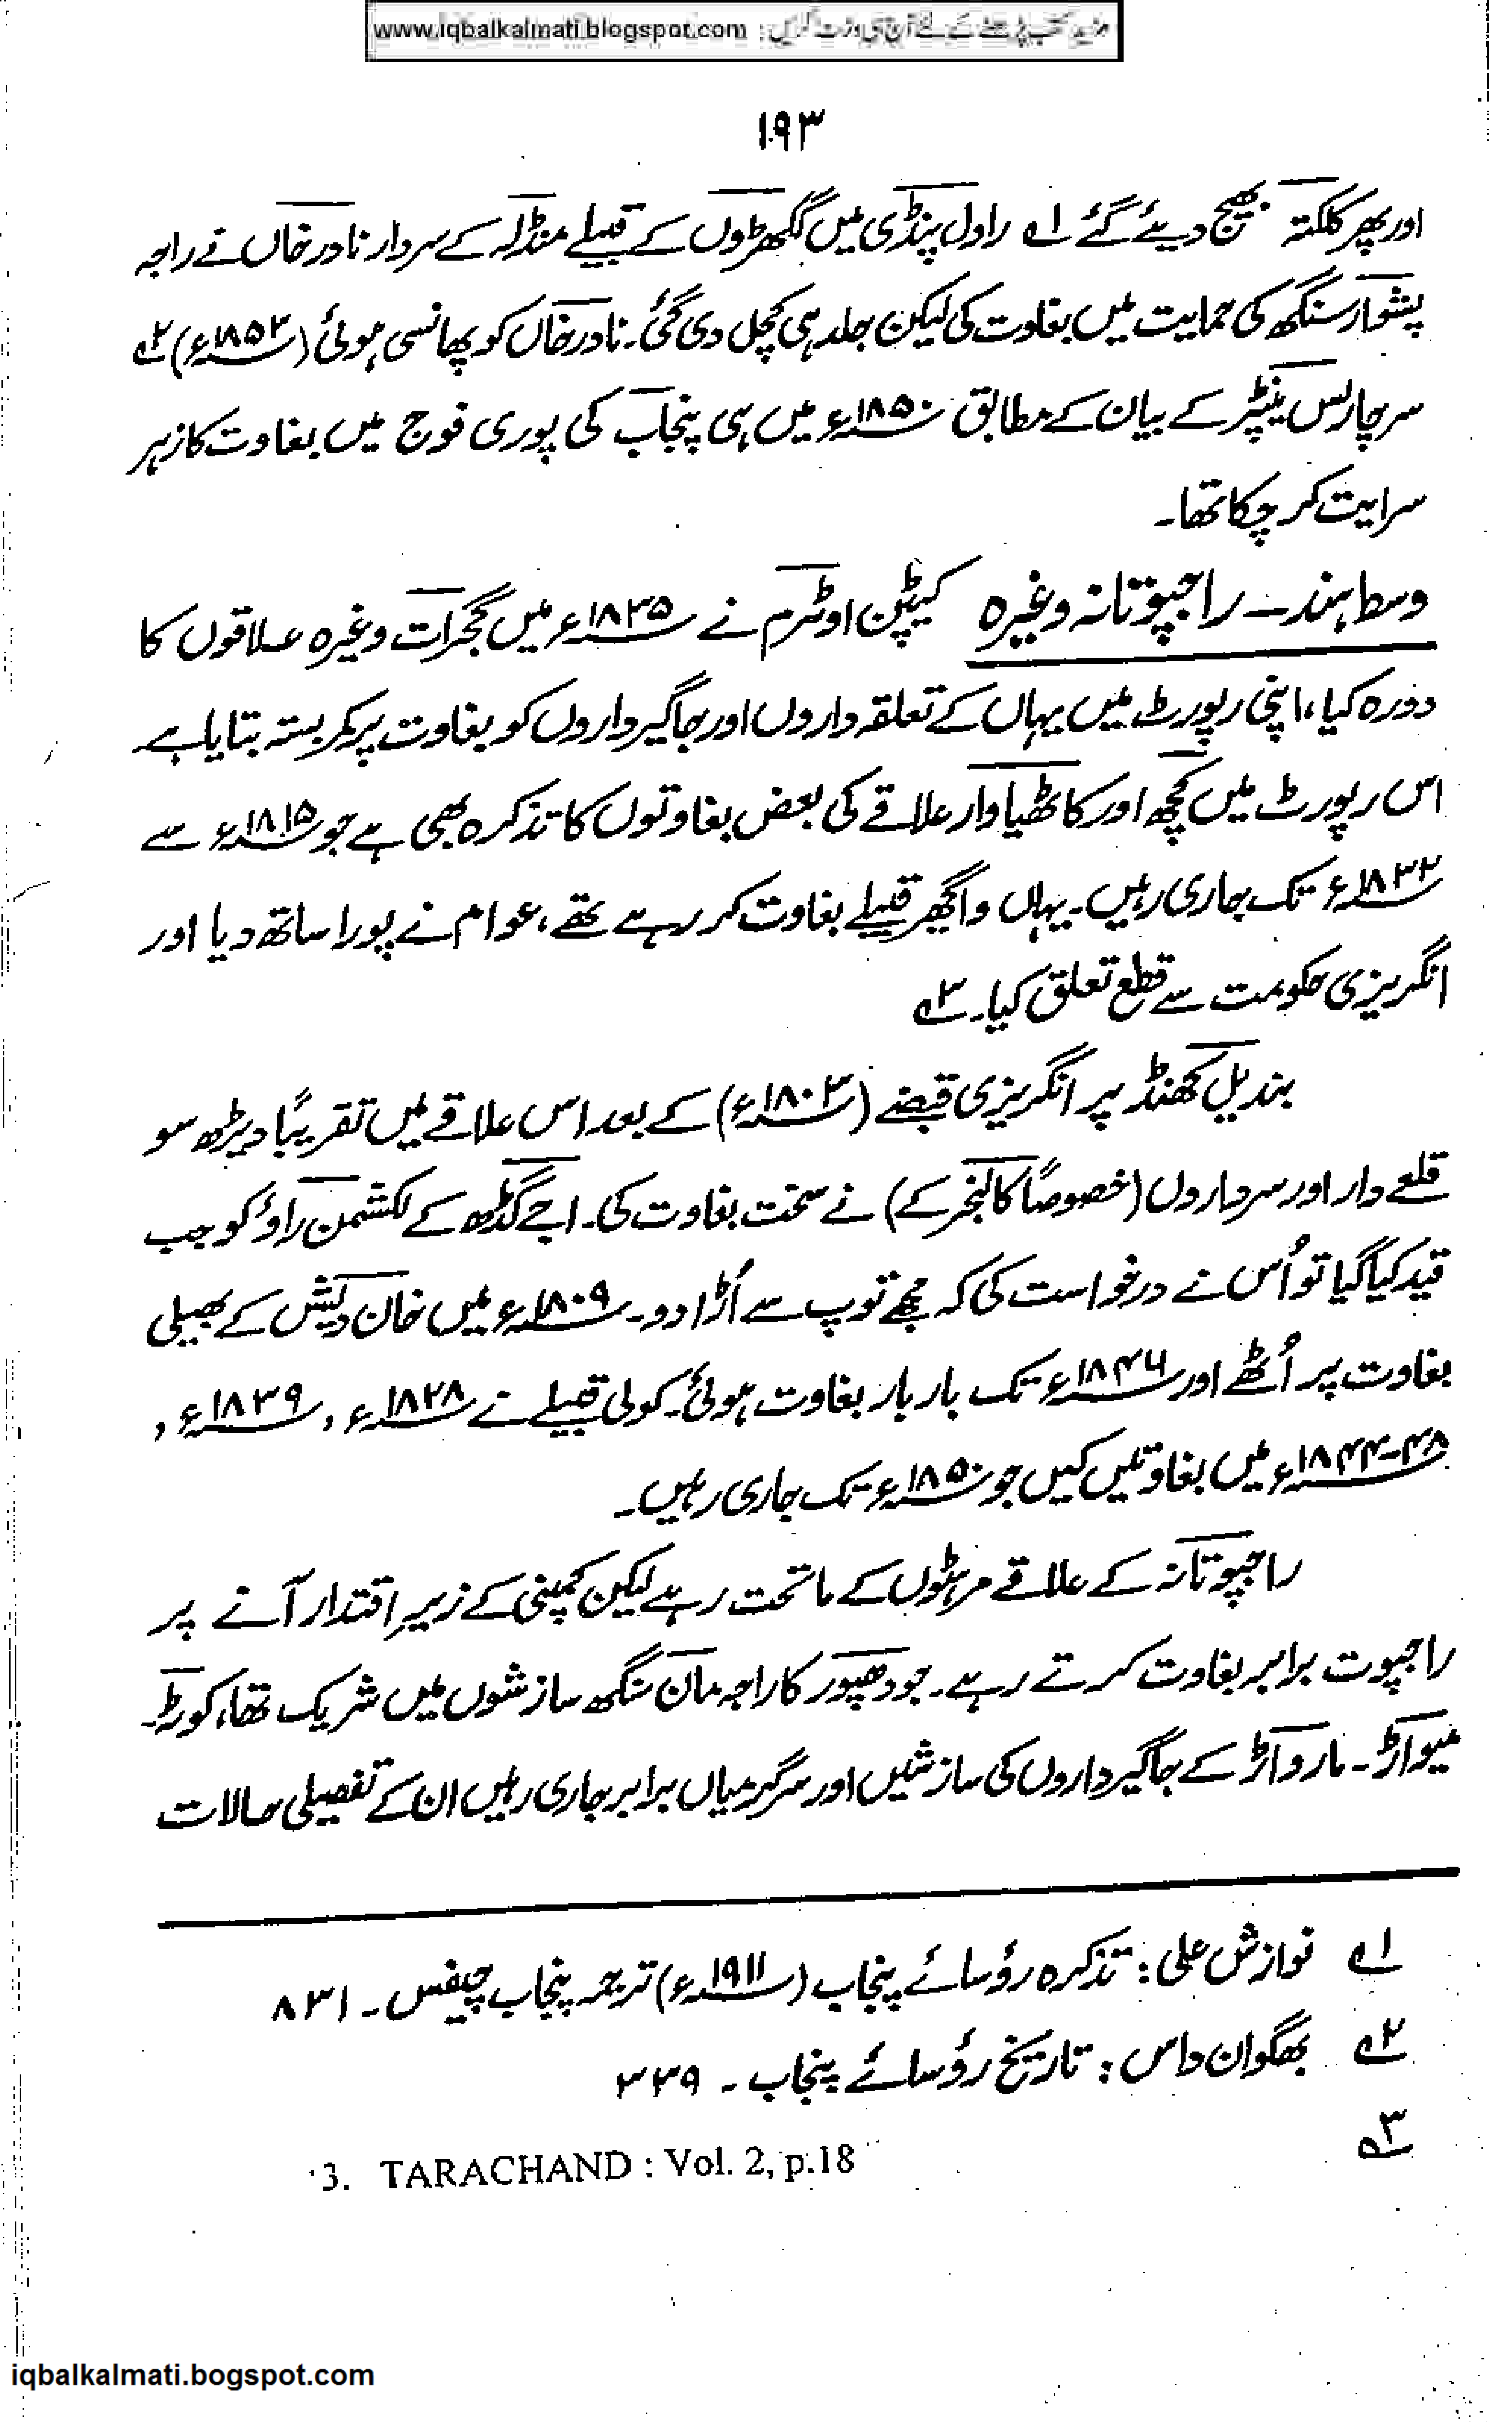 مزید کتب پڑھنے کے لئے آج ہی وزٹ کریں : www.iqbalkalmati.blogspot.com
۱۹۳
اور پھر کلکتہ بھیج دیئے گئے ؎۱ راول پنڈی میں گکھڑوں کے قبیلے منڈلہ کے سردار نادر خاں نے راجہ
پشوار سنگھ کی حمایت میں بغاوت کی لیکن جلد ہی کچل دی گئی۔ نادر خاں کو پھانسی ہوئی (۱۸۵۲ء) ؎۲
سر چارلس نیپئر کے بیان کے مطابق ۱۸۵۰ء میں ہی پنجاب کی پوری فوج میں بغاوت کا زہر
سرایت کر چکا تھا۔
وسط ہند – راجپوتانہ وغیرہ کیپٹن اوٹرم نے ۱۸۳۵ء میں گجرات وغیرہ علاقوں کا
دورہ کیا، اپنی رپورٹ میں یہاں کے تعلقہ داروں اور جاگیرداروں کو بغاوت پر کمربستہ بتایا ہے۔
اس رپورٹ میں کچھ اور کاٹھیاوار علاقے کی بعض بغاوتوں کا تذکرہ بھی ہے جو ۱۸۱۵ء سے
۱۸۳۲ء تک جاری رہیں۔ یہاں واگھر قبیلے بغاوت کر رہے تھے، عوام نے پورا ساتھ دیا اور
انگریزی حکومت سے قطع تعلق کیا۔ ؎۳
بندیل کھنڈ پر انگریزی قبضے (۱۸۰۳ء) کے بعد اس علاقے میں تقریباً دیڑھ سو
قلعے دار اور سرداروں (خصوصاً کالنجر کے) نے سخت بغاوت کی۔ اجے گڈھ کے لکشمن راؤ کو جب
قید کیا گیا تو اُس نے درخواست کی کہ مجھے توپ سے اُڑا دو۔ ۱۸۰۹ء میں خان دیش کے بھیلی
بغاوت پر اُٹھے اور ۱۸۴۶ء تک بار بار بغاوت ہوئی۔ کولی قبیلے نے ۱۸۲۸ء، ۱۸۳۹ء،
۴۸-۱۸۴۴ء میں بغاوتیں کیں جو ۱۸۵۰ء تک جاری رہیں۔
راجپوتانہ کے علاقے مرہٹوں کے ماتحت رہے لیکن کمپنی کے زیرِ اقتدار آنے پر
راجپوت برابر بغاوت کرتے رہے۔ جودھپور کا راجہ مان سنگھ سازشوں میں شریک تھا، کوٹہ۔
میواڑ۔ مارواڑ کے جاگیرداروں کی سازشیں اور سرگرمیاں برابر جاری رہیں ان کے تفصیلی حالات
؎۱ نوازش علی: تذکرہ رؤسائے پنجاب (۱۹۱۱ء) ترجمہ پنجاب چیفس۔ ۸۳۱
؎۲ بھگوان داس: تاریخ رؤسائے پنجاب۔ ۳۳۹
؎۳
3. TARACHAND : Vol. 2, p.18
iqbalkalmati.bogspot.com